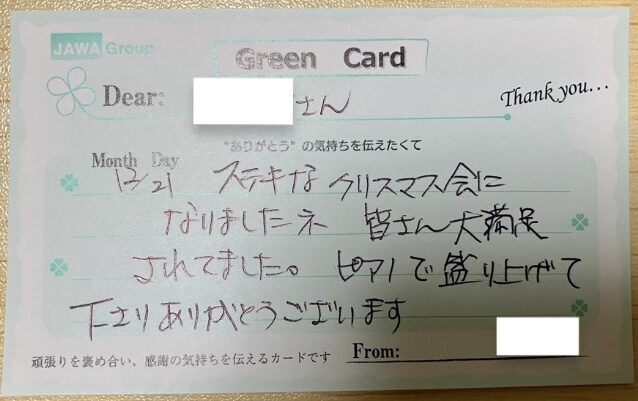 JAWA Group
Green Card
Dear: さん
Thank you...
"ありがとう" の気持ちを伝えたくて
Month Day
12/21 ステキな クリスマス会に
なりましたネ 皆さん大満足
されてました。 ピアノで盛り上げて
下さりありがとうございます
頑張りを褒め合い、感謝の気持ちを伝えるカードです
From: